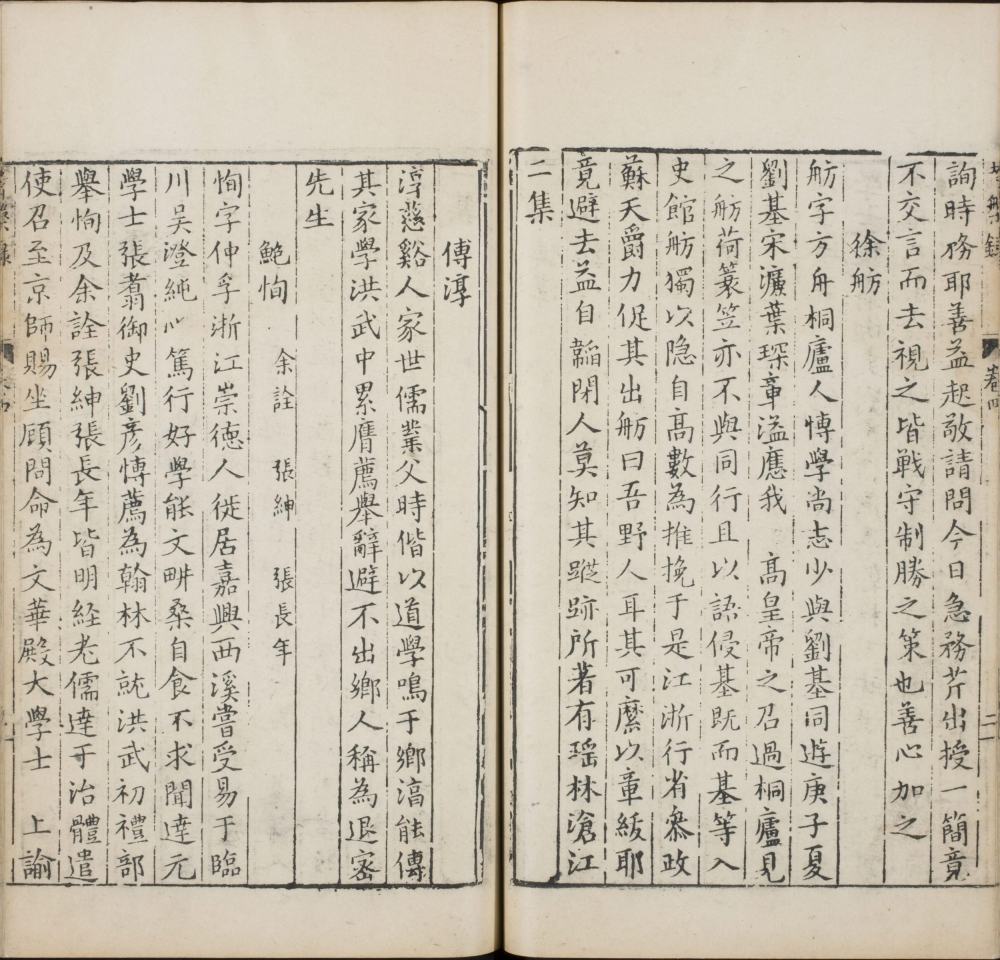 詢時務耶善益起敬請問今日急務芹出授一簡竟
不交言而去視之皆戦守制勝之策也善心加之
徐舫
舫字方舟桐廬人博學尚志少與劉基同遊庚子夏
劉基宋濂葉琛章溢應我　高皇帝之召過桐廬見
之舫荷蓑笠亦不與同行且以語侵基既而基等入
史館舫獨以隐自高數為推挽于是江浙行省叅政
蘇天爵力促其出舫曰吾野人耳其可縻以章綬耶
竟避去益自韜閉人莫知其蹤跡所著有瑶林滄江
二集
傅淳
淳慈谿人家世儒業父時偕以道學鳴于鄉淳能傳
其家學洪武中累膺薦舉辭避不出鄉人稱為退密
先生
鮑恂　余詮　張紳　張長年
恂字仲孚浙江崇德人徙居嘉興西溪嘗受易于臨
川吳澄純心篤行好學能文畊桑自食不求聞達元
學士張翥御史劉彦博薦為翰林不就洪武初禮部
舉恂及余詮張紳張長年皆明経老儒達于治體遣
使召至京師賜坐顧問命為文華殿大學士　上諭
卷四